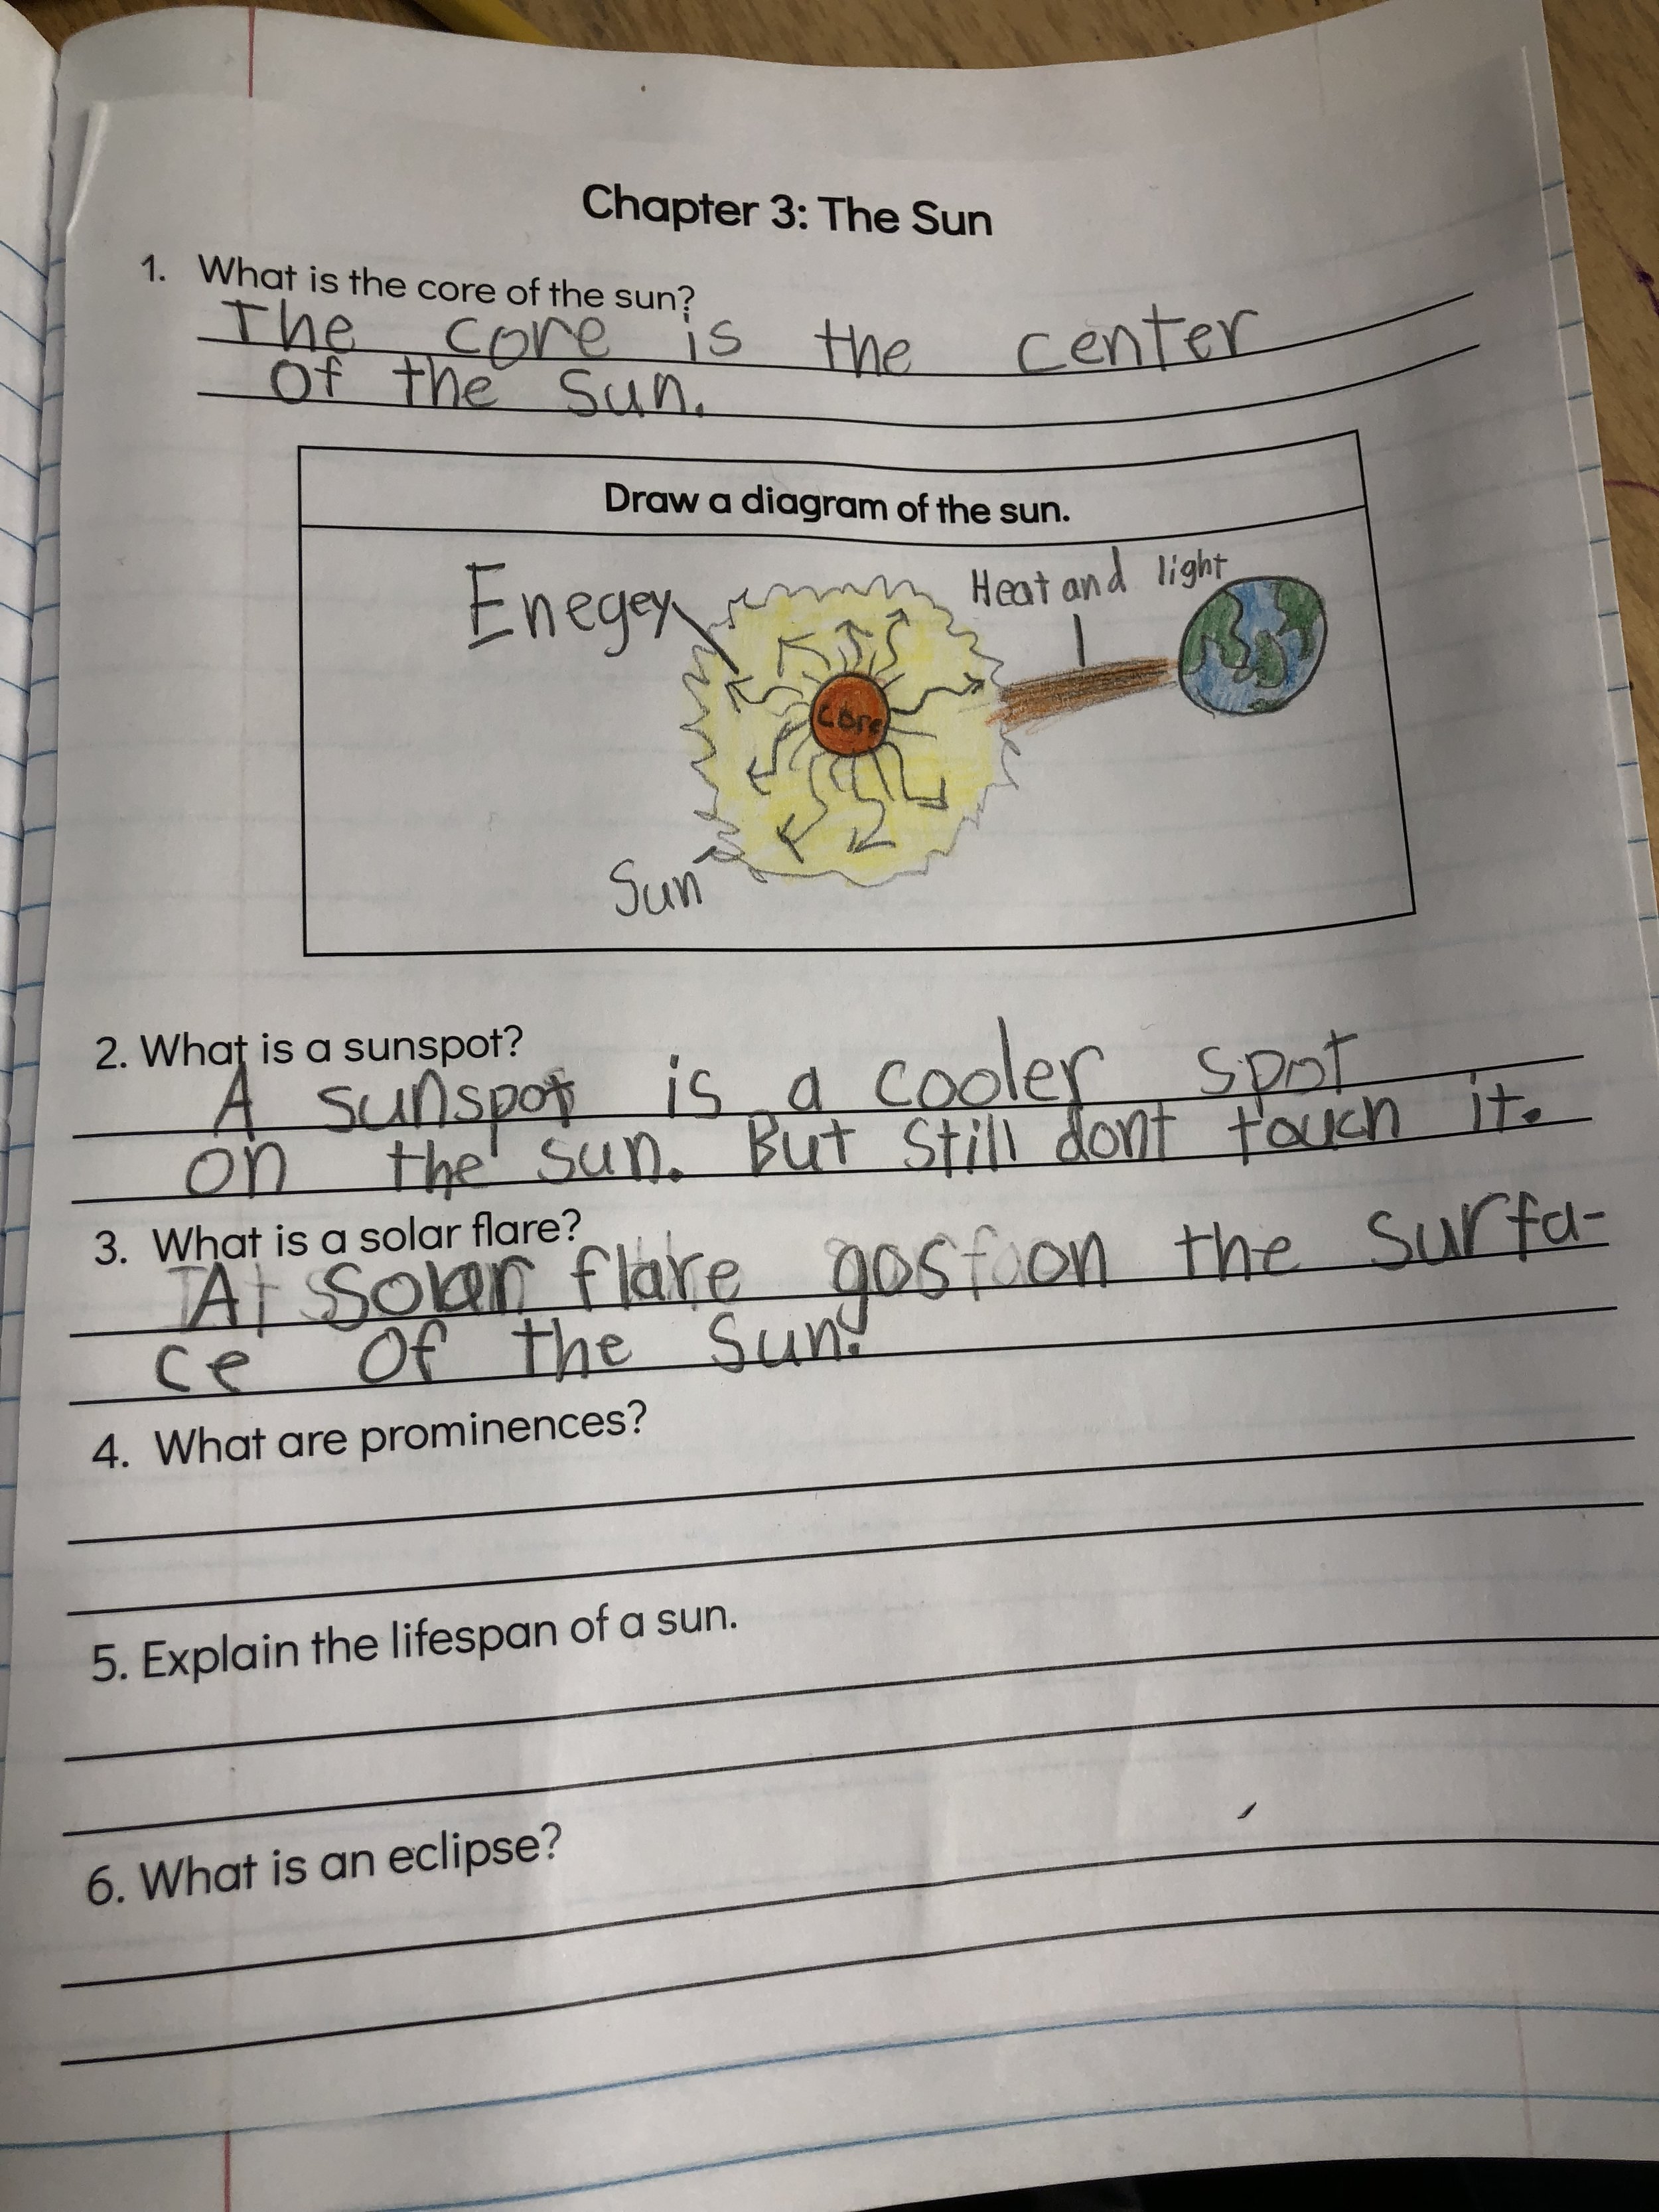 Chapter 3: The Sun
1. What is the core of the sun?
The core is the center
of the sun.
Draw a diagram of the sun.
Enegey
Heat and light
core
Sun
2. What is a sunspot?
A sunspot is a cooler spot
on the sun. But still dont touch it.
3. What is a solar flare?
A solar flare gos on the surfa-
ce of the sun.
4. What are prominences?
5. Explain the lifespan of a sun.
6. What is an eclipse?